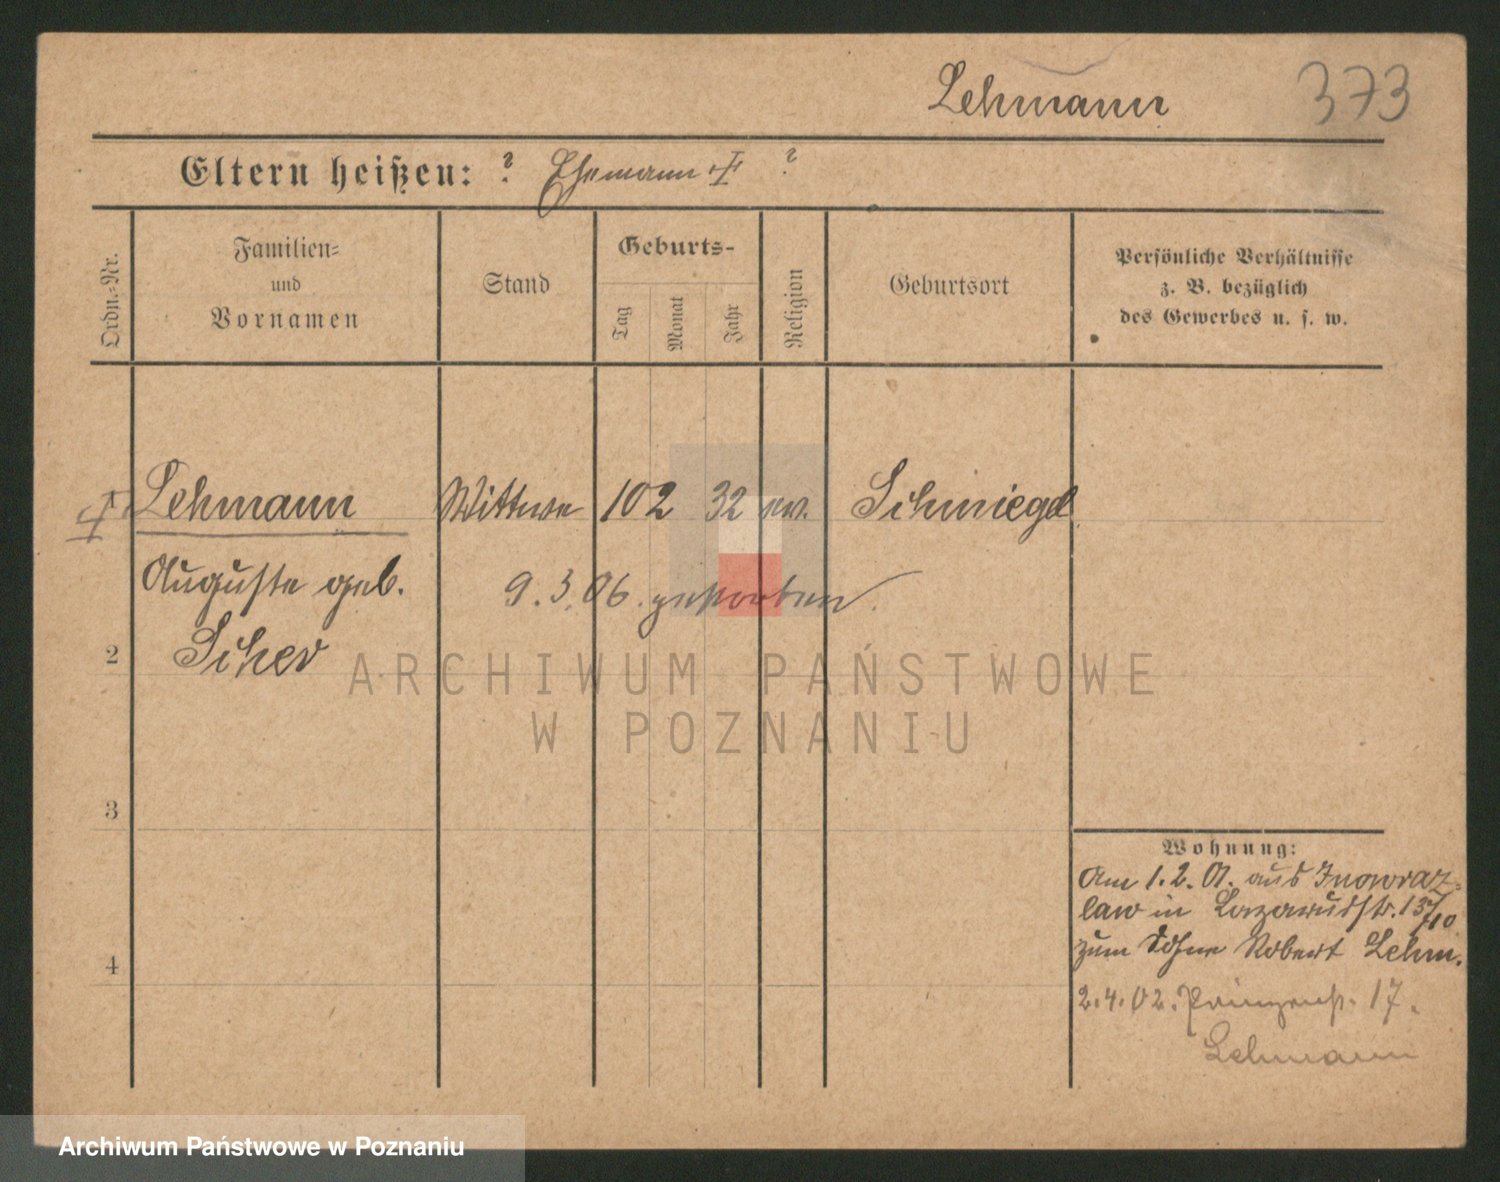 Lehmann 373
Eltern heißen: ? Ehemann ?
Ordn.-Nr.
Familien-
und
Vornamen
Stand
Geburts-
Tag
Monat
Jahr
Religion
Geburtsort
Persönliche Verhältnisse
z. B. bezüglich
des Gewerbes u. s. w.
1 Lehmann Wittwe 10 2 32 ev. Schmiegel
Auguste geb.
9.3.06. gestorben.
2
ARCHIWUM PAŃSTWOWE
W POZNANIU
3
4
Wohnung:
Am 1.2.01. aus Inowraz-
law in Lazarusstr.
zum Sohne Robert Lehm.
2.4.02. Prinzenstr. 17.
Lehmann
Archiwum Państwowe w Poznaniu